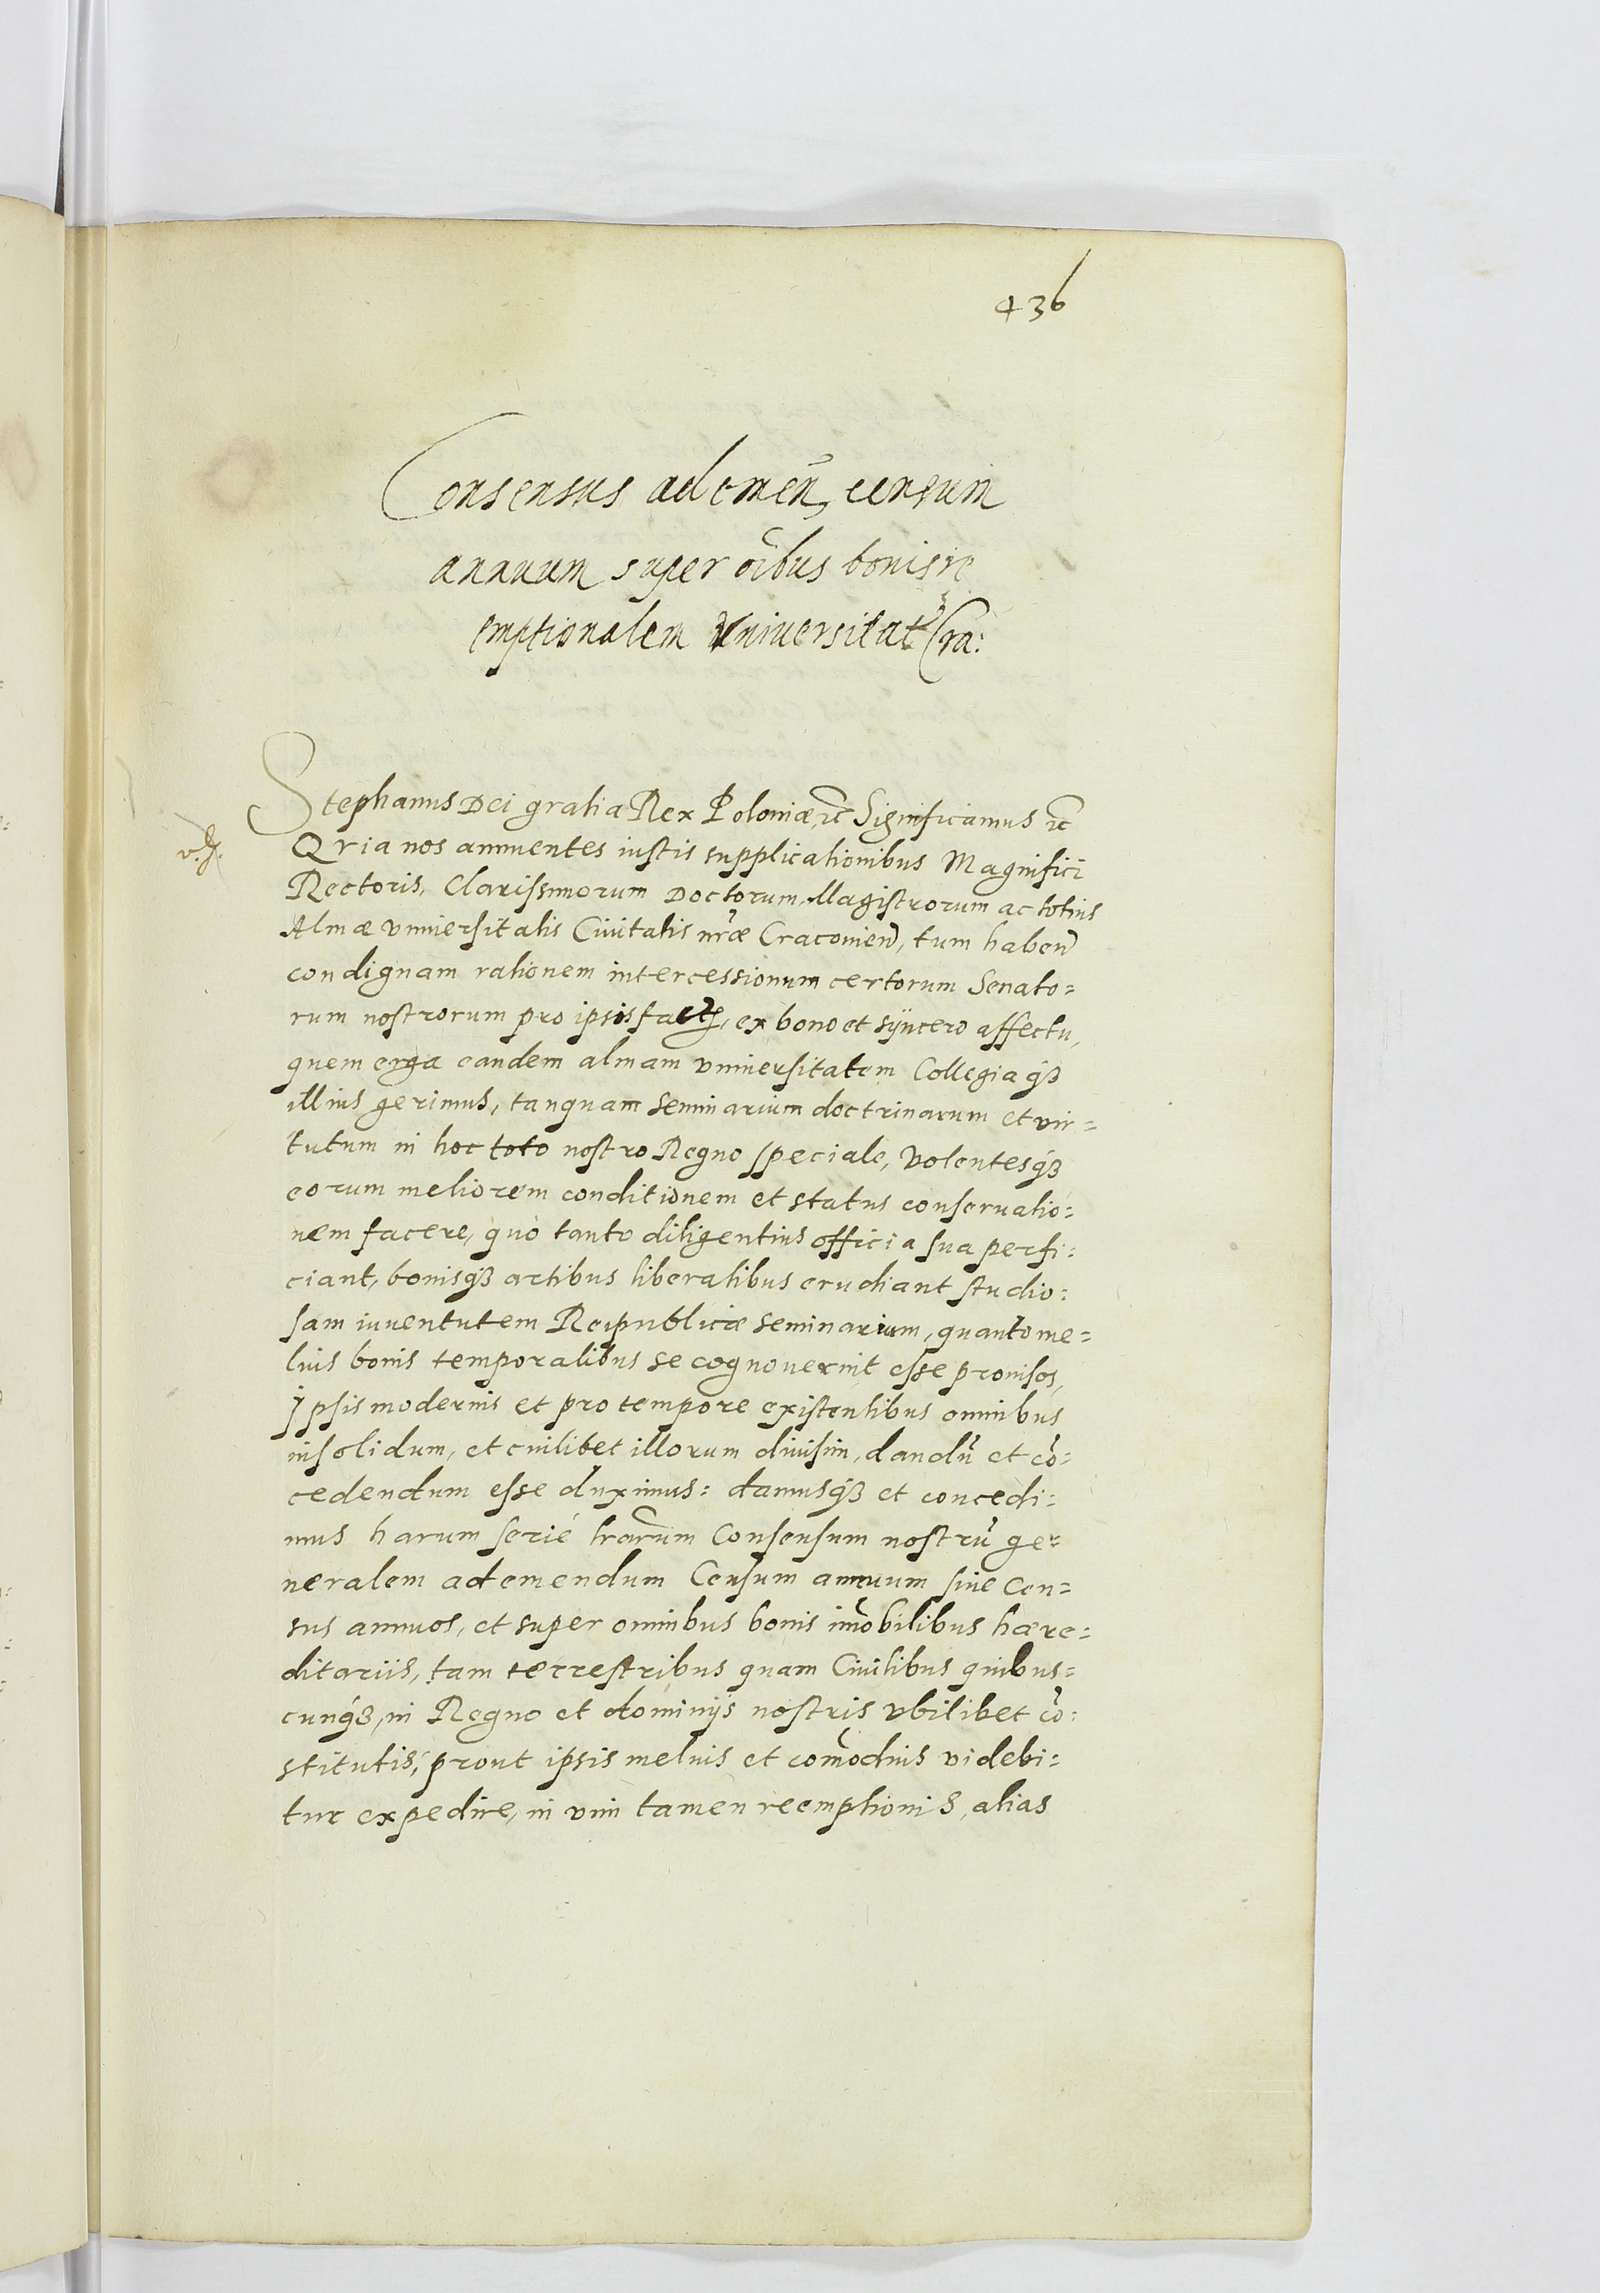 436
Consensus ad emen̄ censum
annuum super oībus bonis re
emptionalem Vniversitat Cra:
Stephanus Dei gratia Rex Poloniæ, ꝛc̄ Significamus ꝛc̄
Quia nos annuentes iustis supplicationibus Magnifici
Rectoris, Clarissimorum Doctorum, Magistrorum ac totius
Almæ vniuersitatis Ciuitatis nr̄æ Cracouien̄, tum haben̄
condignam rationem intercessionum certorum Senato=
rum nostrorum pro ipsis fact, ex bono et syncero affectu,
quem erga eandem almam vniuersitatem Collegia qꝫ
illius gerimus, tanquam seminarium doctrinarum et vir=
tutum in hoc toto nostro Regno speciale, volentesqꝫ
eorum meliorem conditionem et status conseruatio=
nem facere, quo tanto diligentius officia sua perfi=
ciant, bonisqꝫ artibus liberalibus erudiant studio=
sam iuuentutem Reipublicæ seminarium, quanto me=
lius bonis temporalibus se cognouerint esse prouisos,
Ipsis modernis et pro tempore existentibus omnibus
insolidum, et cuilibet illorum diuisim, dandū et cō=
cedendum esse duximus: damusqꝫ et concedi=
mus harum serie lr̄arum Consensum nostrū ge=
neralem ad emendum Censum annuum siue Cen=
sus annuos, et super omnibus bonis im̄obilibus hære=
ditariis, tam terrestribus quam Ciuilibus quibus=
cunqꝫ, in Regno et dominijs nostris vbilibet cō=
stitutis, prout ipsis melius et com̄odius videbi=
tur expedire, in vim tamen reemptionis, alias